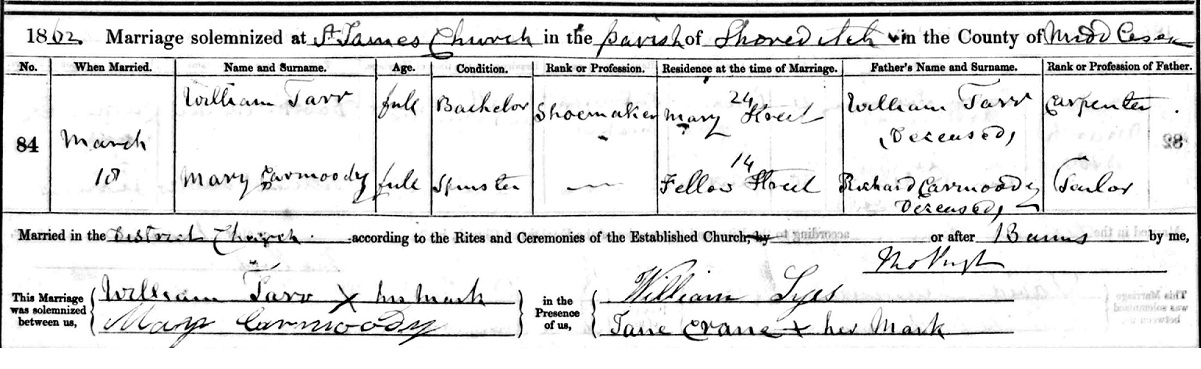 1862 Marriage solemnized at St James Church in the parish of Shoreditch in the County of Middlesex
No. When Married. Name and Surname. Age. Condition. Rank or Profession. Residence at the time of Marriage. Father's Name and Surname. Rank or Profession of Father.
84 March 18
William Tarr full Bachelor Shoemaker 24 Mary Street William Tarr (Deceased) Carpenter
Mary Carmoody full Spinster — 14 Fellow Street Richard Carmoody Deceased) Tailor
Married in the District Church according to the Rites and Ceremonies of the Established Church, by or after Banns by me,
This Marriage was solemnized between us,
William Tarr X his mark
Mary Carmoody
in the Presence of us,
William Lyes
Jane Crane X her Mark